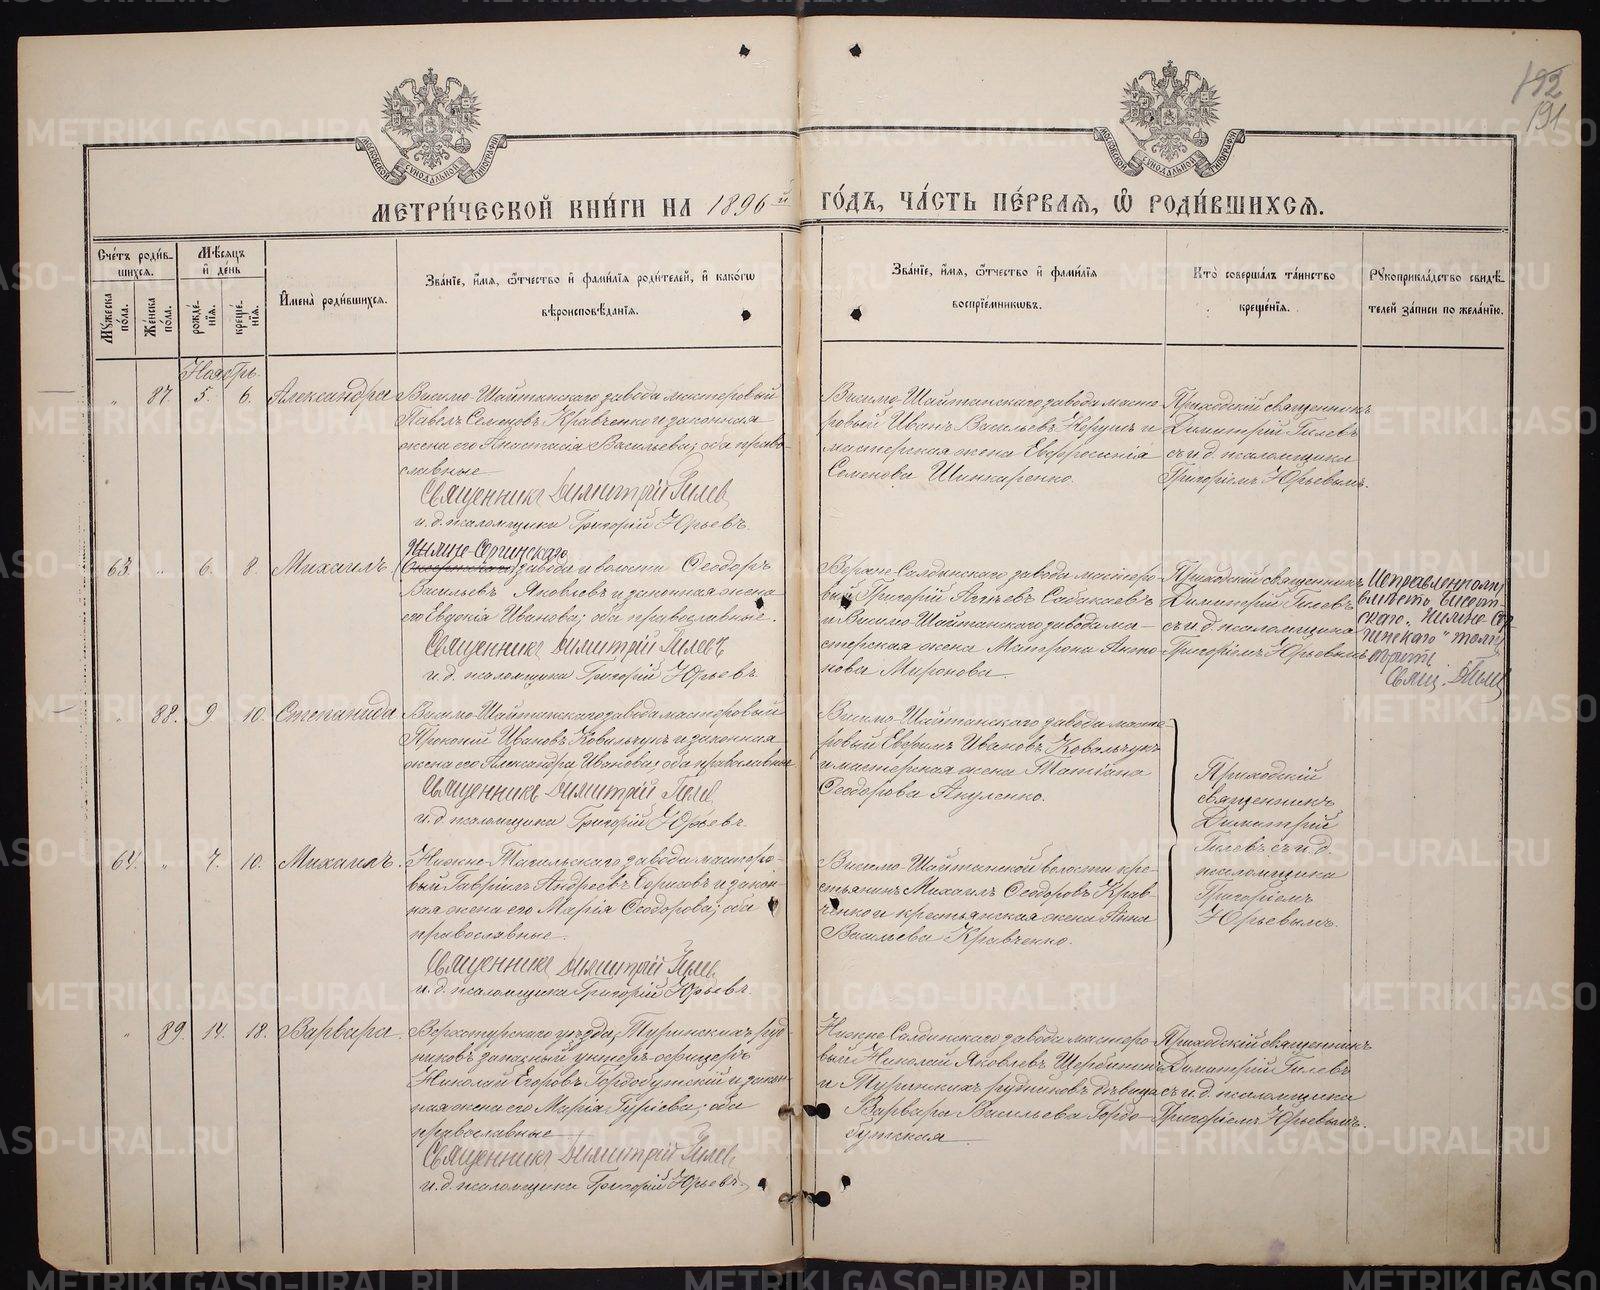 192
191
МОСКОВСКОЙ СѴНОДАЛЬНОЙ ТИПОГРАФІИ
МОСКОВСКОЙ СѴНОДАЛЬНОЙ ТИПОГРАФІИ
МЕТРИ́ЧЕСКОЙ КНИ́ГИ НА 1896й ГО́ДЪ, ЧА́СТЬ ПЕ́РВАѦ, Ѽ РОДИ́ВШИХСѦ.
Сче́тъ роди́в-
шихсѧ.
Мꙋ́жеска по́ла.
Же́нска по́ла.
Мѣ́сѧцъ
и҆ де́нь
рожде́-
нїѧ.
креще́-
нїѧ.
И҆мена̀ роди́вшихсѧ.
Зва́нїе, и҆́мѧ, ѻ҆́тчество и҆ фами́лїѧ роди́телей, и҆ како́гѡ
вѣроисповѣ́данїѧ.
Зва́нїе, и҆́мѧ, ѻ҆́тчество и҆ фами́лїѧ
воспрїе́мниковъ.
Кто̀ соверша́лъ та́инство
креще́нїѧ.
Рꙋкоприкла́дство свидѣ́-
телей за́писи по жела́нїю.
Ноябрь.
" 87. 5. 6. Александра
Висимо-Шайтанскаго завода мастеровый
Павелъ Семеновъ Кравченко и законная
жена его Анастасія Васильева; оба право-
славные
Священникъ Димитрій Гилевъ
и.д. псаломщика Григорій Юрьевъ.
Висимо-Шайтанскаго завода масте-
ровый Иванъ Васильевъ и
мастерская жена Евфросинія
Семенова Шинкаренко.
Приходскій священникъ
Димитрій Гилевъ
съ и.д. псаломщика
Григоріемъ Юрьевымъ.
63. " 6. 8. Михаилъ
Нижне-Сергинскаго
завода и волости Ѳеодоръ
Васильевъ Яковлевъ и законная жена
его Евдокія Иванова; оба православные.
Священникъ Димитрій Гилевъ
и.д. псаломщика Григорій Юрьевъ.
Верхне-Салдинскаго завода мастеро-
вый Григорій Сабакаевъ
и Висимо-Шайтанскаго завода ма-
стерская жена Матрона Анто-
нова Миронова.
Приходскій священникъ
Димитрій Гилевъ
съ и.д. псаломщика
Григоріемъ Юрьевымъ
Исправленному
вмѣсто Бисерт-
скаго "Нижне-Сер-
гинскаго"
вѣрить
Свящ. Д. Гилевъ
" 88. 9 10. Степанида
Висимо-Шайтанскаго завода мастеровый
Прокопій Ивановъ Ковальчукъ и законная
жена его Александра Иванова; оба православные
Священникъ Димитрій Гилевъ
и.д. псаломщика Григорій Юрьевъ.
Висимо-Шайтанскаго завода масте-
ровый Евфимъ Ивановъ Ковальчукъ
и мастерская жена Татіана
Ѳеодорова Акуленко.
Приходскій
священникъ
Димитрій
Гилевъ съ и.д.
псаломщика
Григоріемъ
Юрьевымъ.
64. " 7. 10. Михаилъ.
Нижне-Тагильскаго завода мастеро-
вый Гавріилъ Андреевъ Борисовъ и закон-
ная жена его Марія Ѳеодорова; оба
православные.
Священникъ Димитрій Гилевъ
и.д. псаломщика Григорій Юрьевъ.
Висимо-Шайтанской волости кре-
стьянинъ Михаилъ Ѳеодоровъ Крав-
ченко и крестьянская жена Анна
Васильева Кравченко.
" 89. 14. 18. Варвара.
Верхотурскаго уѣзда, Туринскихъ руд-
никовъ запасный унтеръ-офицеръ
Николай Егоровъ Гордобутскій и закон-
ная жена его Марія Гуріева; оба
православные
Священникъ Димитрій Гилевъ
и.д. псаломщика Григорій Юрьевъ.
Нижне-Салдинскаго завода мастеро-
вый Николай Яковлевъ Щербининъ
и Туринскихъ рудниковъ дѣвица
Варвара Васильева Гордо-
бутская
Приходскій священникъ
Димитрій Гилевъ
съ и.д. псаломщика
Григоріемъ Юрьевымъ.